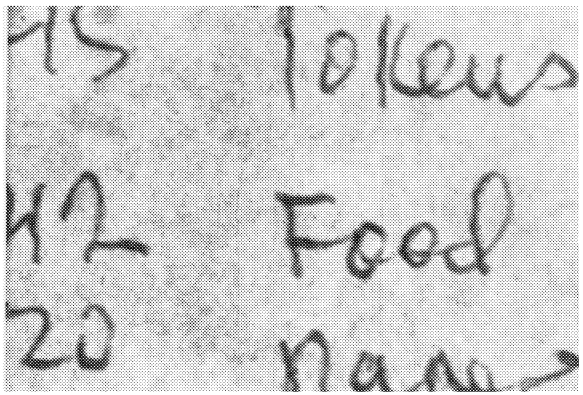 45 Tokens
42 Food
20